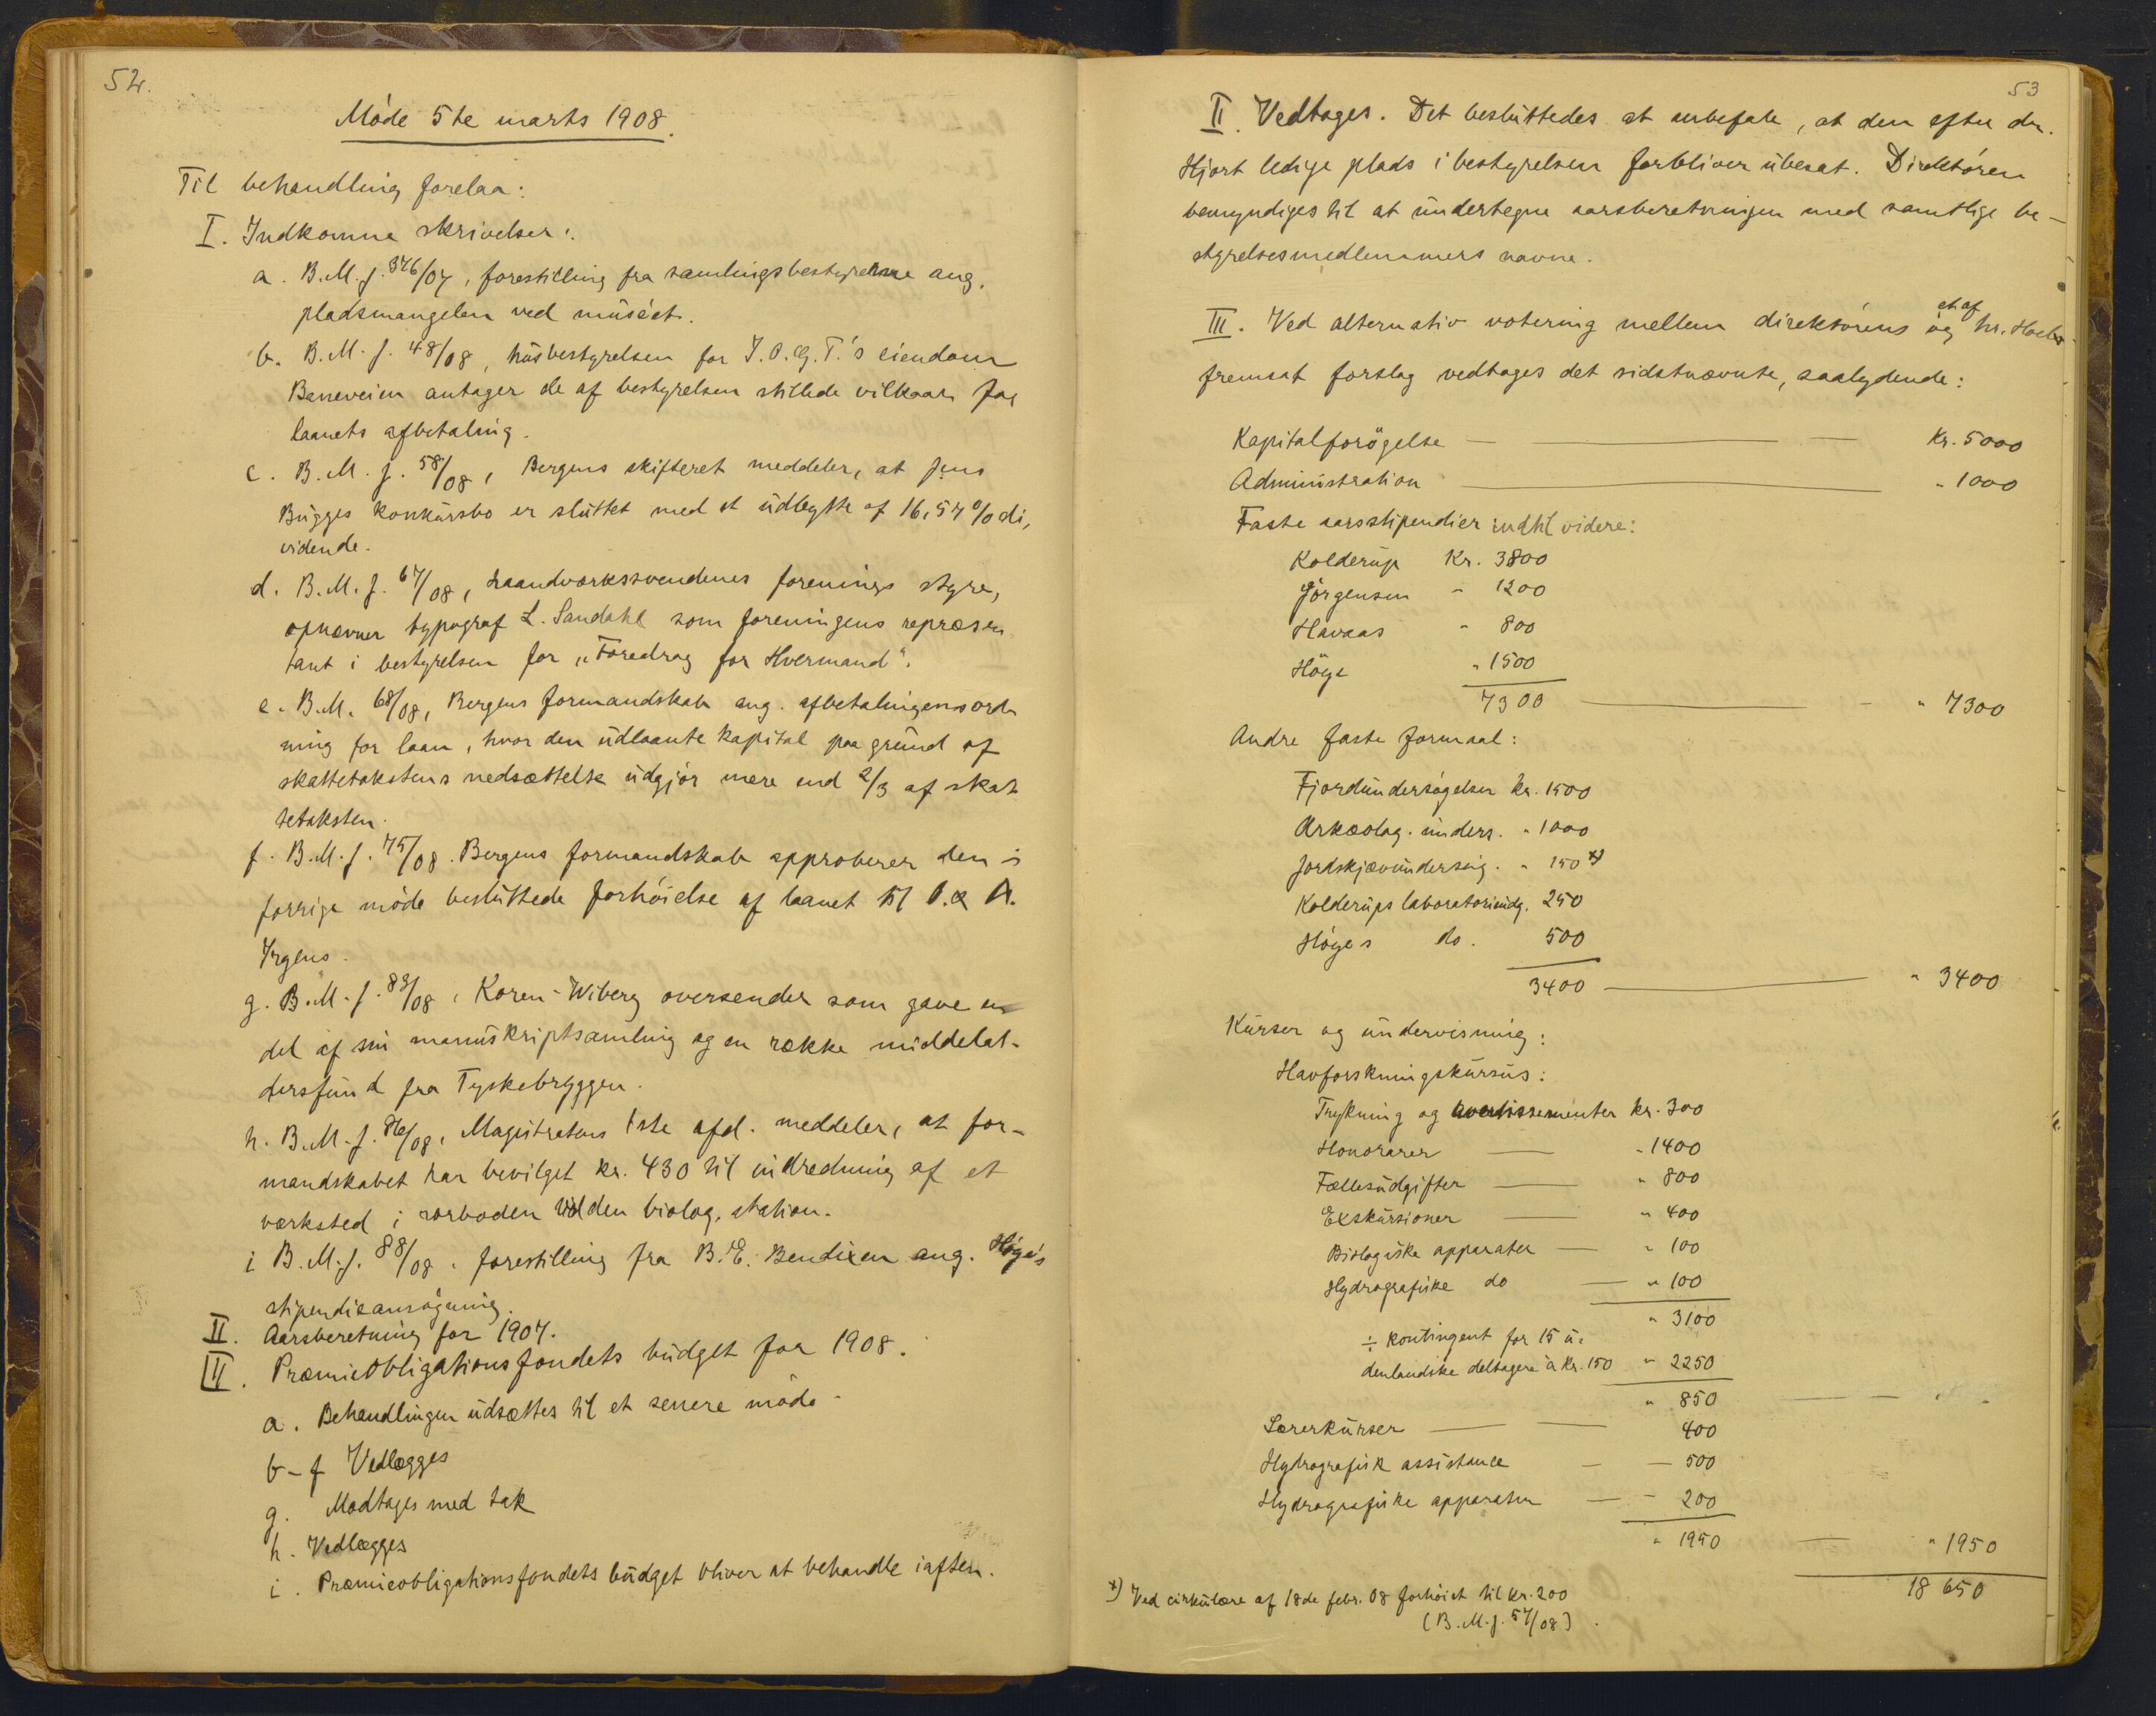 52.
Møde 5te marts 1908.
Til behandling forelaa:
I. Indkomne skrivelser:
a. B.M.J. 346/07, forestilling fra samlingsbestyrerne ang.
pladsmangelen ved muséet.
b. B.M.J. 48/08, husbestyrelsen for I.O.G.T.'s eiendom
Baneveien antager de af bestyrelsen stillede vilkaar for
laanets afbetaling.
c. B.M.J. 58/08, Bergens skifteret meddeler, at Jens
Bugges konkursbo er sluttet med et udbytte af 16,54% di,
vidende.
d. B.M.J. 67/08, haandverkssvendenes forenings styre,
opnævner typograf L. Sandahl som foreningens repræsen
tant i bestyrelsen for „Foredrag for Hvermand“.
e. B.M. 68/08, Bergens formandskab ang. afbetalingensord
ning for laan, hvor den udlaante kapital paa grund af
skattetakstens nedsættelse udgjør mere end 2/3 af skat
tetaksten.
f. B.M.J. 75/08. Bergens formandskab approberer den i
forrige møde besluttede forhøielse af laanet til O. & A.
Irgens.
g. B.M.J. 83/08, Koren-Wiberg oversender som gave en
del af sin manuskriptsamling og en række middelal-
dersfund fra Tyskebryggen.
h. B.M.J. 86/08, Magistratens 1ste afd. meddeler, at for-
mandskabet har bevilget kr. 430 til indredning af et
værksted i rorboden ved den biolog. station.
i B.M.J. 88/08. forestilling fra B.E. Bendixen ang. Høye's
stipendieansøgning.
II. Aarsberetning for 1907.
III. Præmieobligationsfondets budget for 1908.
a. Behandlingen udsættes til et senere møde
b-f Vedlægges
g. Modtages med tak
h. Vedlægges
i. Præmieobligationsfondets budget bliver at behandle iaften.
53
II. Vedtages. Det besluttedes at anbefale, at den efter dr.
Hjort ledige plads i bestyrelsen forbliver ubesat. Direktøren
bemyndiges til at undertegne aarsberetningen med samtlige be-
styrelsesmedlemmers navne.
III. Ved alternativ votering mellem direktørens og et af hr.
fremsat forslag vedtages det sidstnævnte, saalydende:
Kapitalforøgelse — kr. 5000
Administration — " 1000
Faste aarsstipendier indtil videre:
Kolderup Kr. 3800
Jørgensen " 1200
Havaas " 800
Høye " 1500
7300 — " 7300
Andre faste formaal:
Fjordundersøgelser kr. 1500
Arkæolog. unders. " 1000
Jordskjævundersøg. " 150 x)
Kolderups laboratorieudg. 250
Høyes do. 500
3400 — " 3400
Kurser og undervisning:
Havforskningskursus:
Trykning og avertissementer kr. 300
Honorarer — " 1400
Fællesudgifter — " 800
Exskursioner — " 400
Biologiske apparater — " 100
Hydrografiske do — " 100
" 3100
÷ kontingent for 15 u-
denlandske deltagere à kr. 150 " 2250
" 850
Lærerkurser — — 400
Hydrografisk assistance — — 500
Hydrografiske apparater — — 200
" 1950 — " 1950
18 650
x) Ved cirkulære af 18de febr. 08 forhøiet til kr. 200
(B.M.J. 57/08).